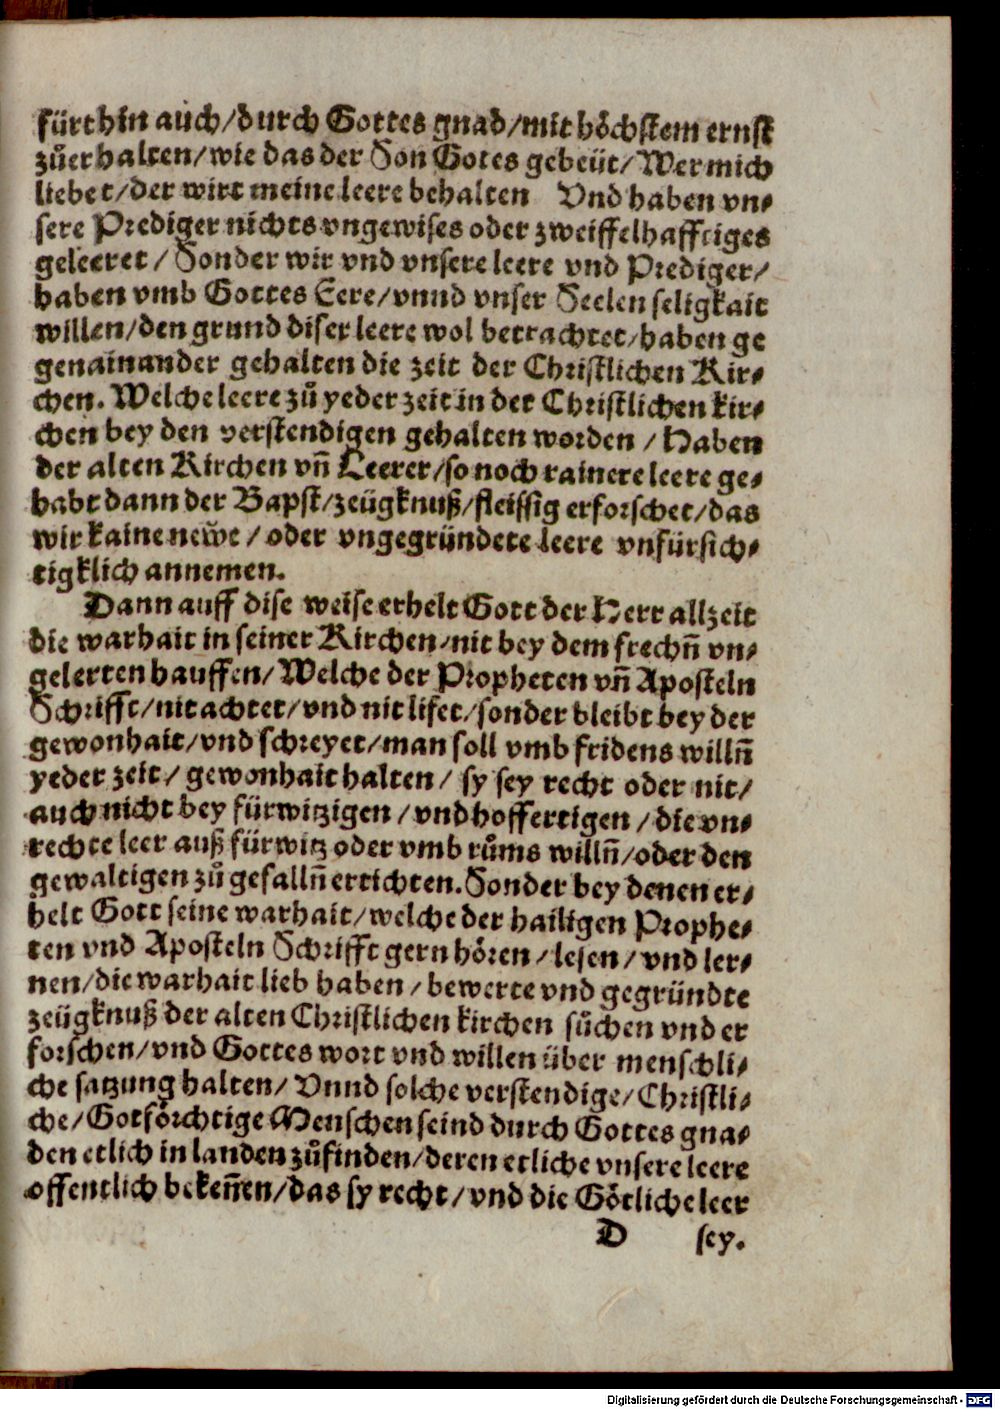 fürthin auch/durch Gottes gnad/mit höchstem ernst
zůerhalten/wie das der Son Gotes gebeüt/Wer mich
liebet/der wirt meine leere behalten Vnd haben vn⸗
sere Prediger nichts vngewises oder zweiffelhafftiges
geleeret/Sonder wir vnd vnsere leere vnd Prediger/
haben vmb Gottes Eere/vnnd vnser Seelen seligkait
willen/den grund diser leere wol betrachtet/haben ge
genainander gehalten die zeit der Christlichen Kir⸗
chen. Welche leere zů yeder zeit in der Christlichen kir⸗
chen bey den verstendigen gehalten worden/Haben
der alten Kirchen vñ Leerer/so noch rainere leere ge⸗
habt dann der Bapst/zeügknuß/fleissig erforschet/das
wir kaine newe/oder vngegründete leere vnfürsich⸗
tigklich annemen.
Dann auff dise weise erhelt Gott der Herr allzeit
die warhait in seiner Kirchen/nit bey dem frechñ vn⸗
gelerten hauffen/Welche der Propheten vñ Aposteln
Schrifft/nit achtet/vnd nit liset/sonder bleibt bey der
gewonhait/vnd schreyet/man soll vmb fridens willñ
yeder zeit/gewonhait halten/sy sey recht oder nit/
auch nicht bey fürwitzigen/vnd hoffertigen/die vn⸗
rechte leer auß fürwitz oder vmb růms willñ/oder den
gewaltigen zů gefallñ ertichten. Sonder bey denen er⸗
helt Gott seine warhait/welche der hailigen Prophe⸗
ten vnd Aposteln Schrifft gern hören/lesen/vnd ler⸗
nen/die warhait lieb haben/bewerte vnd gegründte
zeügknuß der alten Christlichen kirchen sůchen vnd er
forschen/vnd Gottes wort vnd willen über menschli⸗
che satzung halten/Vnnd solche verstendige/Christli⸗
che/Gotförchtige Menschen seind durch Gottes gna⸗
den etlich in landen zůfinden/deren etliche vnsere leere
offentlich bekeñen/das sy recht/vnd die Götliche leer
D sey.
Digitalisierung gefördert durch die Deutsche Forschungsgemeinschaft - DFG